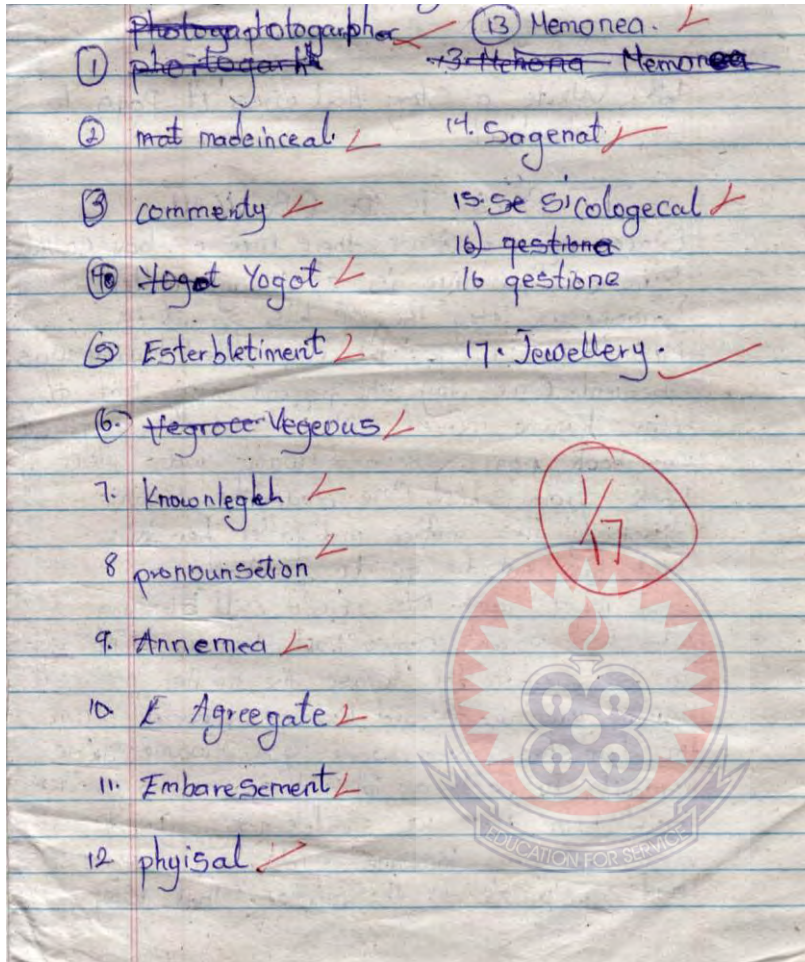 photogarpher
①
② mat madeinceal.
③ commenty
④ Yogot
⑤ Esterbletiment
⑥. Vegeous
7. Knownlegleh
8 pronounsetion
9. Annemea
10. Agreegate
11. Embaresement
12. phyisal
⑬ Memonea.
14. Sagenat
15. Se Sicologecal
16) qestione
16 qestione
17. Jewellery.
1/17
EDUCATION FOR SERVICE